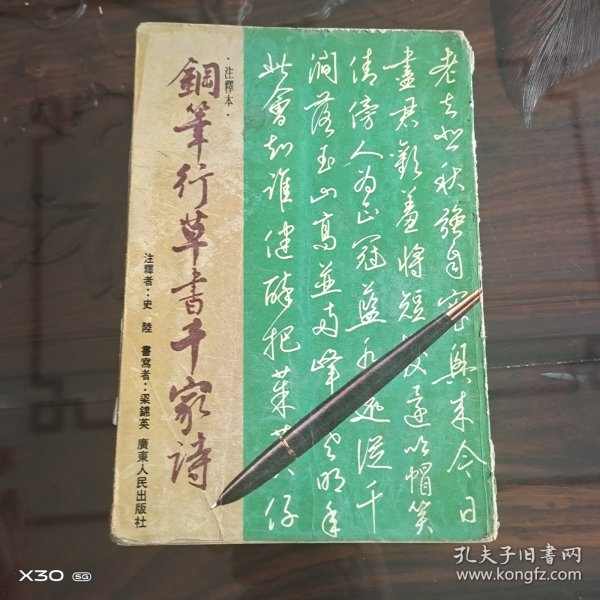 老去悲秋強自寬興來今日
盡君歡羞將短发還吹帽笑
倩傍人为正冠藍水遠從千
澗落玉山高並兩峰寒明年
此會知誰健醉把茱萸仔
·注釋本·
鋼筆行草書千家詩
注釋者：史 陸 書寫者：梁錦英 廣東人民出版社
X30 5G
孔夫子旧书网
www.kongfz.com